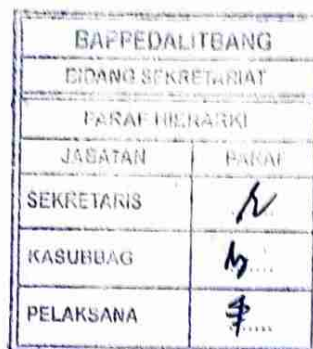 BAPPEDALITBANG
BIDANG SEKRETARIAT
PARAF HIERARKI
JABATAN PARAF
SEKRETARIS
KASUBBAG
PELAKSANA